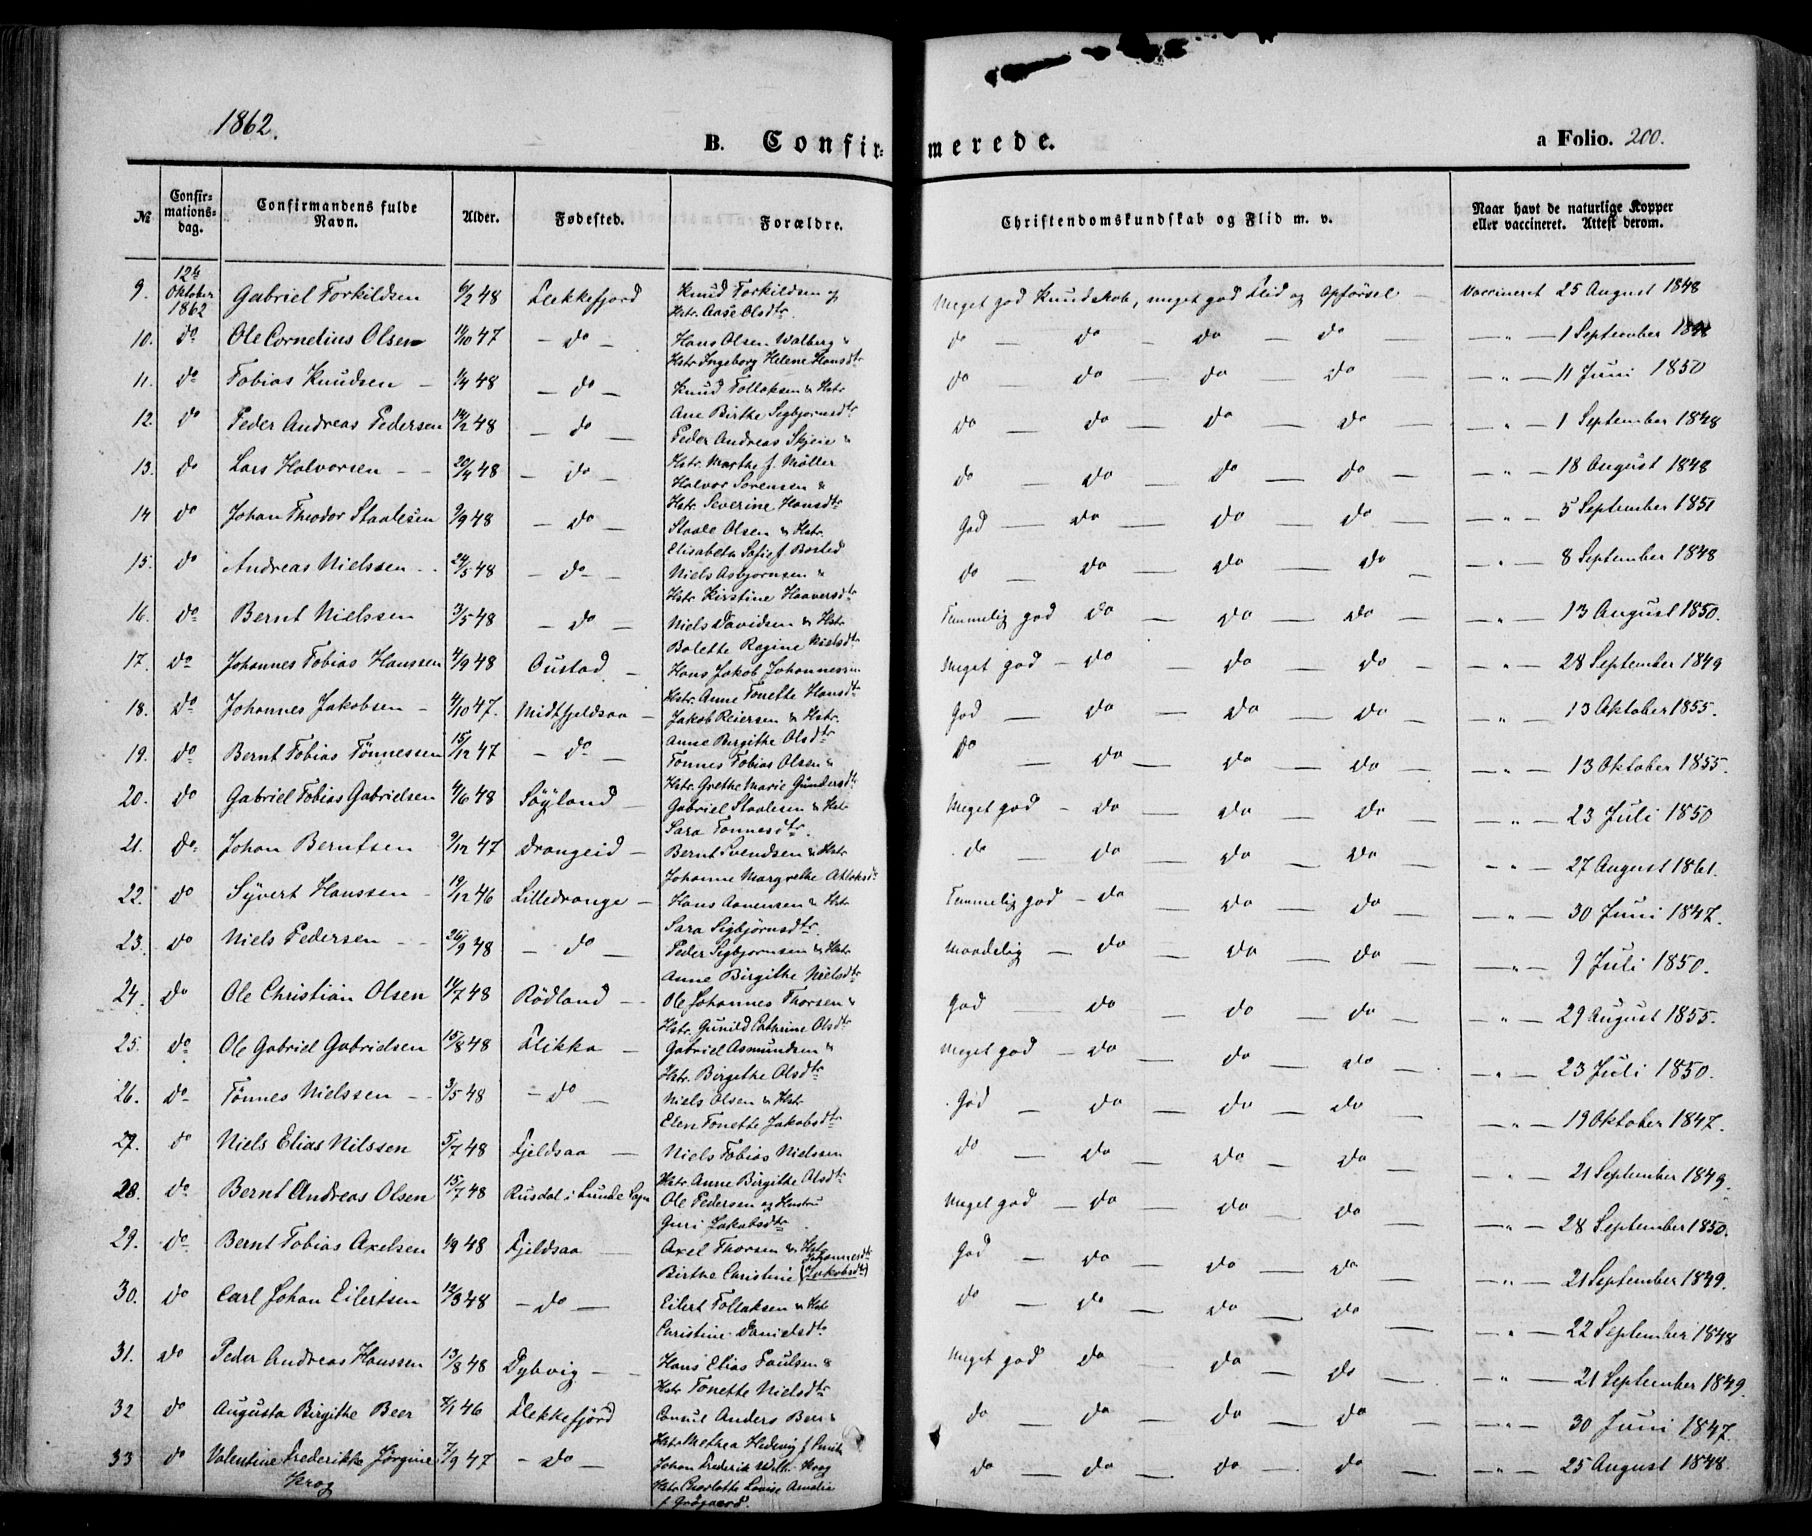 1862.
B. Confirmerede.
a Folio. 200.
№ Confirmationsdag. Confirmandens fulde Navn. Alder. Fødested. Forældre. Christendomskundskab og Flid m. v. Naar havt de naturlige Kopper eller vaccineret. Attest derom.
9. 12te Oktober 1862 Gabriel Torkildsen 6/2 48 Flekkefjord Knud Torkildsen og Hstr. Aase Olsdtr. Meget god Kundskab, meget god Flid og Opførsel – Vaccineret 25 August 1848
10. do Ole Cornelius Olsen 11/10 47 – do – Hans Olsen Walberg & Hstr Ingeborg Helene Hansdtr do – do – do – do – " – 1 September
11. do Tobias Knudsen – 1/4 48 – do – Knud Tollaksen & Hstr Ane Birthe Sigbjørnsdtr do – do – do – do – " – 11 Juni 1850
12. do Peder Andreas Pedersen 14/2 48 – do – Peder Andreas Skjeie & Hstr. Marthe f. Møller do – do – do – do – " – 1 September 1848
13. do Lars Halvorsen – – 20/4 48 – do – Halvor Sørensen & Hstr. Severine Hansdtr do – do – do – do – " – 18 August 1848
14 do Johan Theodor Staalesen 9/9 48 – do – Staale Olsen & Hstr. Elisabeth Sofie f. Bosted God – do – do – do – " – 5 September 1851
15. do Andreas Nielssen – – 24/5 48 – do – Niels Asbjørnsen & Hstr. Kirstine Haaversdtr do – do – do – do – " – 8 September 1848
16. do Bernt Nielssen 3/5 48 – do – Niels Davidsen & Hstr Bolette Regine Nielsdtr Temmelig god do – do – do – " – 13 August 1850.
17. do Johannes Tobias Hanssen 4/9 48 Oustad – Hans Jakob Johannessen Hstr. Anne Tonette Hansdtr Meget god – do – do – do – " – 28 September 1849
18. do Johannes Jakobsen – 4/10 47. Midtfjeldsaa – Jakob Reiersen & Hstr. Anne Birgithe Olsdtr God – do – do – do – " – 13 Oktober 1855.
19. do Bernt Tobias Tønnessen 15/12 47 – do – Tønnes Tobias Olsen & Hstr. Grethe Marie Gundersdtr do – do – do – do – " – 13 Oktober 1855.
20. do Gabriel Tobias Gabrielsen 4/6 48 Søyland – Gabriel Staalesen & Hstr Sara Tønnesdtr. Meget god – do – do – do – " – 23 Juli 1850
21. do Johan Berntsen 9/12 47 Drangeid – Bernt Svendsen & Hstr Johanne Margrethe Atlaksdtr do – do – do – do " – 27 August 1861.
22. do Syvert Hanssen – 19/12 46 Lilledrange – Hans Aanensen & Hstr Sara Sigbjørnsdtr. Temmelig god – do – do – do – " – 30 Juni 1847.
23. do Niels Pedersen – – 26/9 48 – do – Peder Sigbjørnsen & Hstr Anne Birgithe Nielsdtr Maadelig – do – do – do – " – 9 Juli 1850.
24. do Ole Christian Olsen 14/7 48 Rødland – Ole Johannes Thorsen & Hstr. Gunild Cathrine Olsdtr God – do – do – do – " – 29 August 1855.
25. do Ole Gabriel Gabrielsen 15/8 48 Flikka – Gabriel Asmundsen & Hstr. Birgithe Olsdtr Meget god – do – do – do – " – 23 Juli 1850.
26. do Tønnes Nielssen – – 3/5 48 – do – Niels Olsen & Hstr Elen Tonette Jakobsdtr God – do – do – do – " – 19 Oktober 1847.
27. do Niels Elias Nilssen 5/7 48 Fjeldsaa – Niels Tobias Nielssen Hstr. Anne Birgithe Olsdtr do – do – do – do – " – 21 September 1849.
28. do Bernt Andreas Olsen 15/7 48 Rusdal i Lunde Sogn Ole Pedersen og Hustru Guri Jakobsdtr Meget god – do – do – do – " – 28 September 1850.
29. do Bernt Tobias Axelsen 1/9 48 Fjeldsaa – Axel Thorsen & Hstr Birthe Christine Johannesdtr (Jakobsdtr) God – do – do – do – " – 21 September 1849.
30. do Carl Johan Eilertsen 12/3 48 – do – Eilert Tollaksen & Hstr Christine Danielsdtr do – do – do – do – " – 22 September 1848
31. do Peder Andreas Hanssen 13/8 48 Dybvig – – Hans Elias Paulsen & Hstr Tonette Nielsdtr Meget god do – do – do – " – 21 September 1849.
32 do Augusta Birgithe Beer 7/1 46 Flekkefjord Consul Anders Beer & Hstr Methea Hedevig f. do – do – do – do – " – 30 Juni 1847.
33 do Valentine Frederikke Jørgine Krog 7/9 47 – do – Johan Frederik Wilh. Krog Hstr Charlotte Louise Amalia f. Grøgaard. do – do – do – do – " – 25 August 1848.